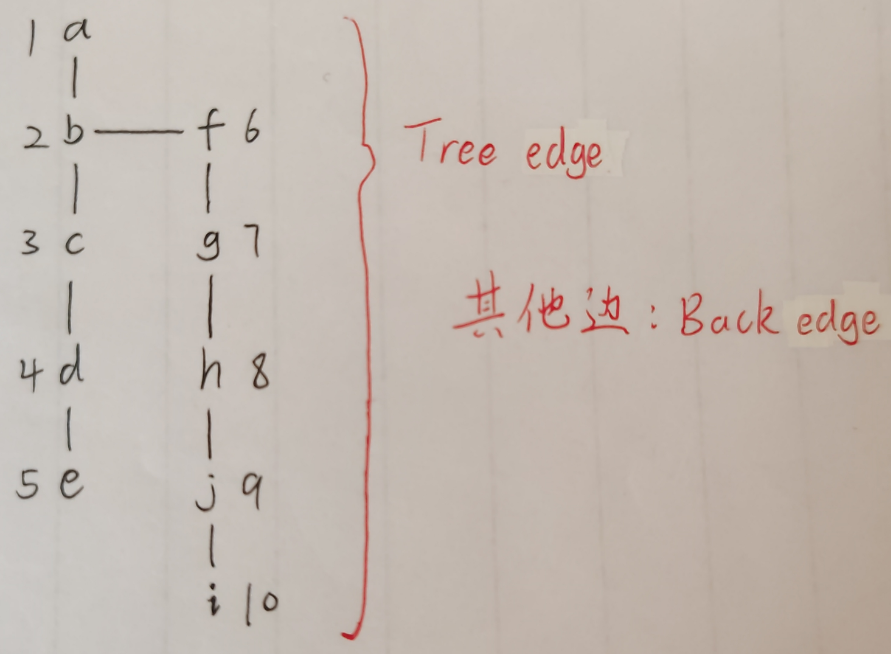 1 a
2 b f 6
Tree edge
3 c g 7
其他边: Back edge
4 d h 8
5 e j 9
i 10